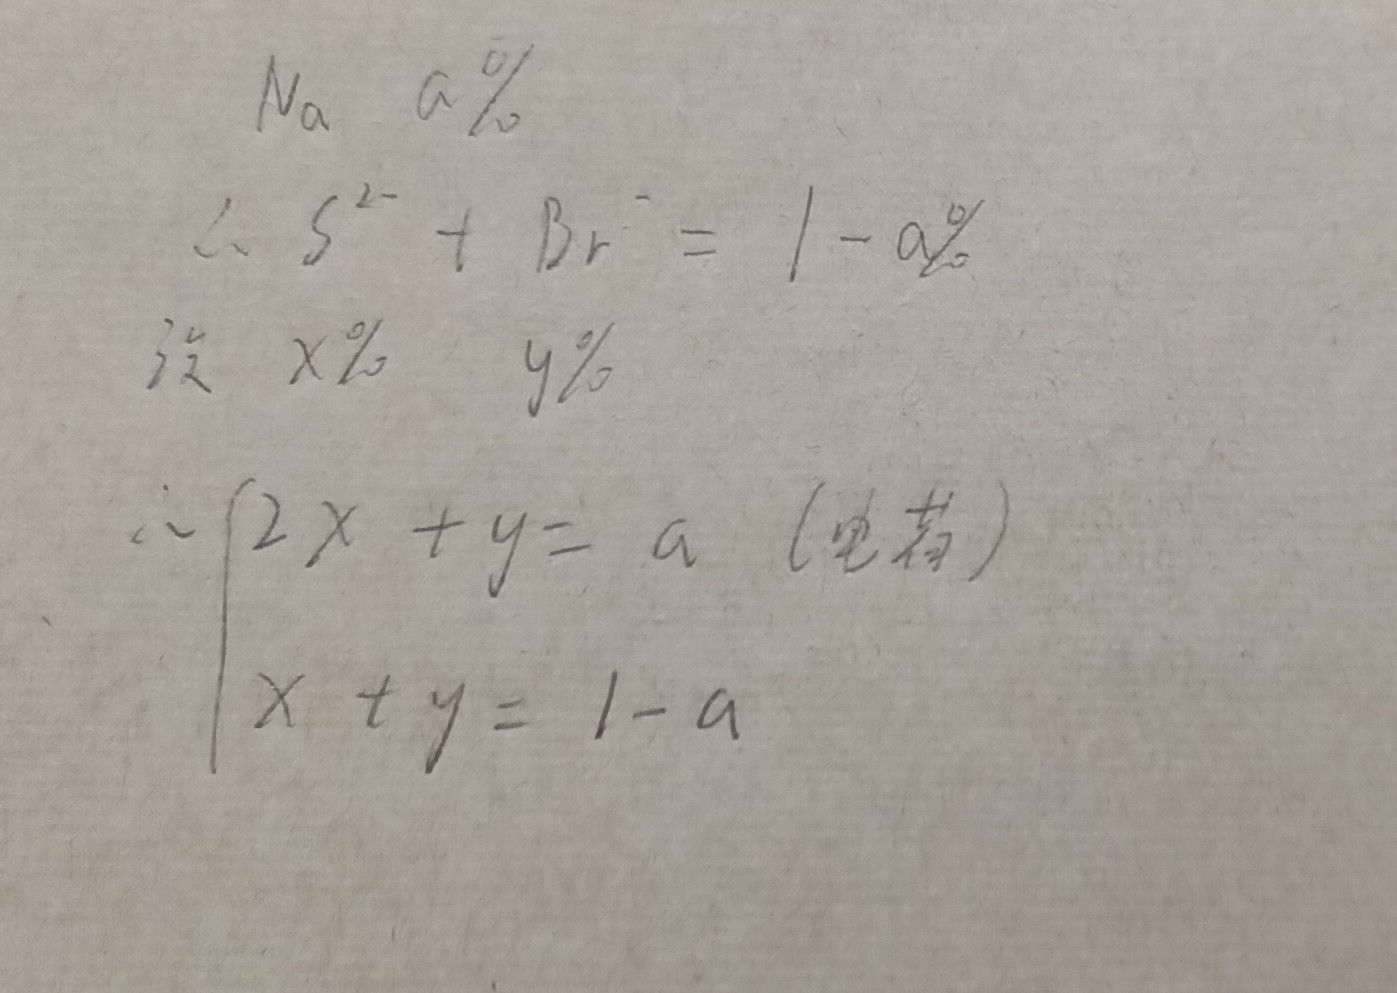 Na a%
∴ S²⁻ + Br⁻ = 1 - a%
设 x% y%
∴ { 2x + y = a (电荷)
x + y = 1 - a